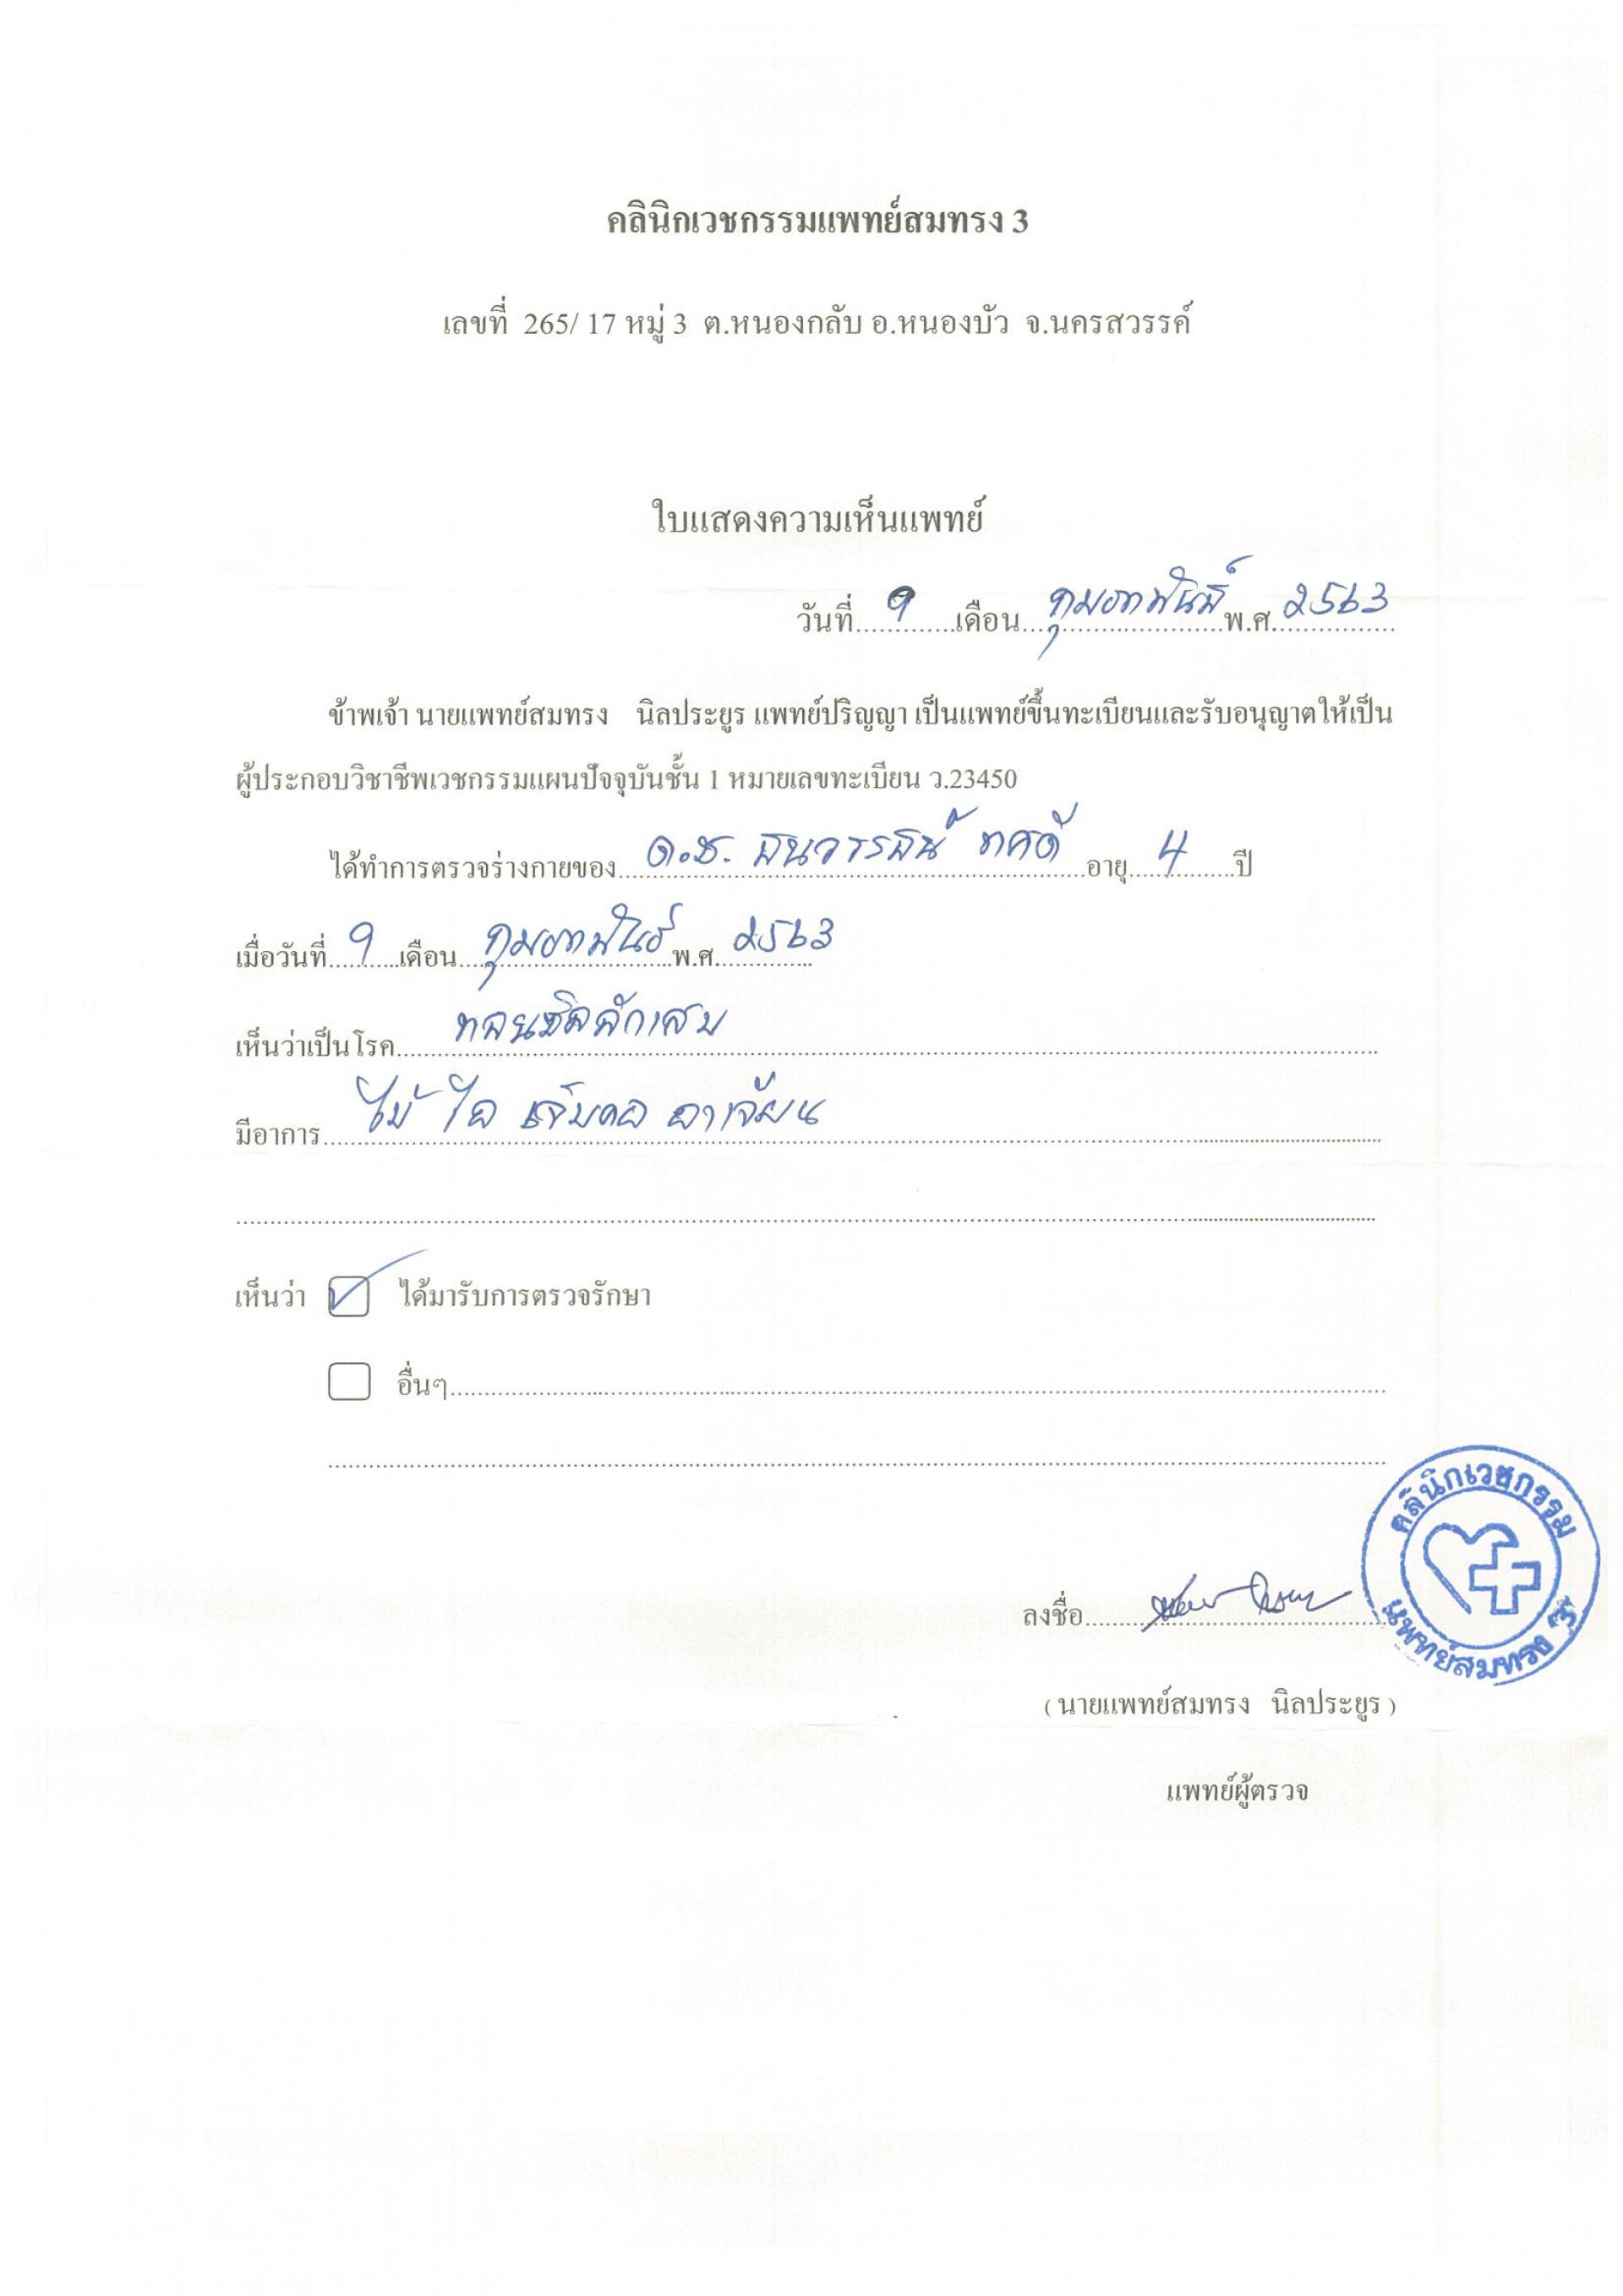 คลินิกเวชกรรมแพทย์สมทรง 3
เลขที่ 265/ 17 หมู่ 3 ต.หนองกลับ อ.หนองบัว จ.นครสวรรค์
ใบแสดงความเห็นแพทย์
วันที่ 9 เดือน กุมภาพันธ์ พ.ศ. 2563
ข้าพเจ้า นายแพทย์สมทรง นิลประยูร แพทย์ปริญญา เป็นแพทย์ขึ้นทะเบียนและรับอนุญาตให้เป็น
ผู้ประกอบวิชาชีพเวชกรรมแผนปัจจุบันชั้น 1 หมายเลขทะเบียน ว.23450
ได้ทำการตรวจร่างกายของ ด.ช. อายุ 4 ปี
เมื่อวันที่ 9 เดือน กุมภาพันธ์ พ.ศ. 2563
เห็นว่าเป็นโรค ทอนซิลอักเสบ
มีอาการ ไข้ ไอ เจ็บคอ อาเจียน
เห็นว่า ได้มารับการตรวจรักษา
อื่นๆ
คลินิกเวชกรรม
แพทย์สมทรง 3
ลงชื่อ
( นายแพทย์สมทรง นิลประยูร )
แพทย์ผู้ตรวจ